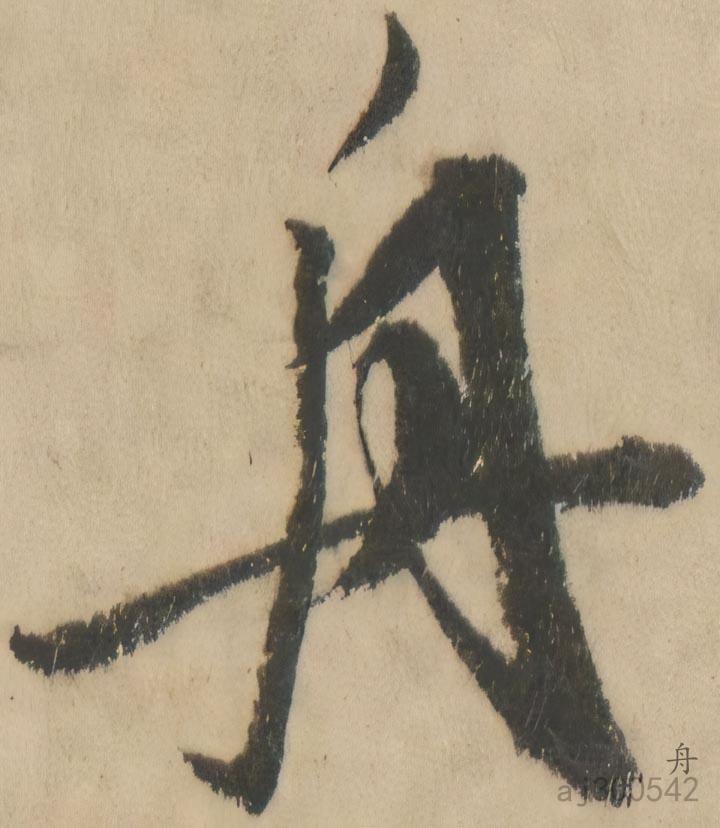 舟
舟
aj300542